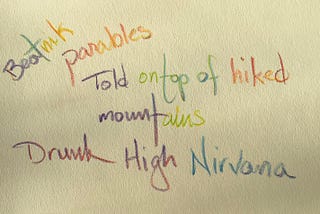 Beatnik
parables
Told ontop of hiked
mountains
Drunk High Nirvana